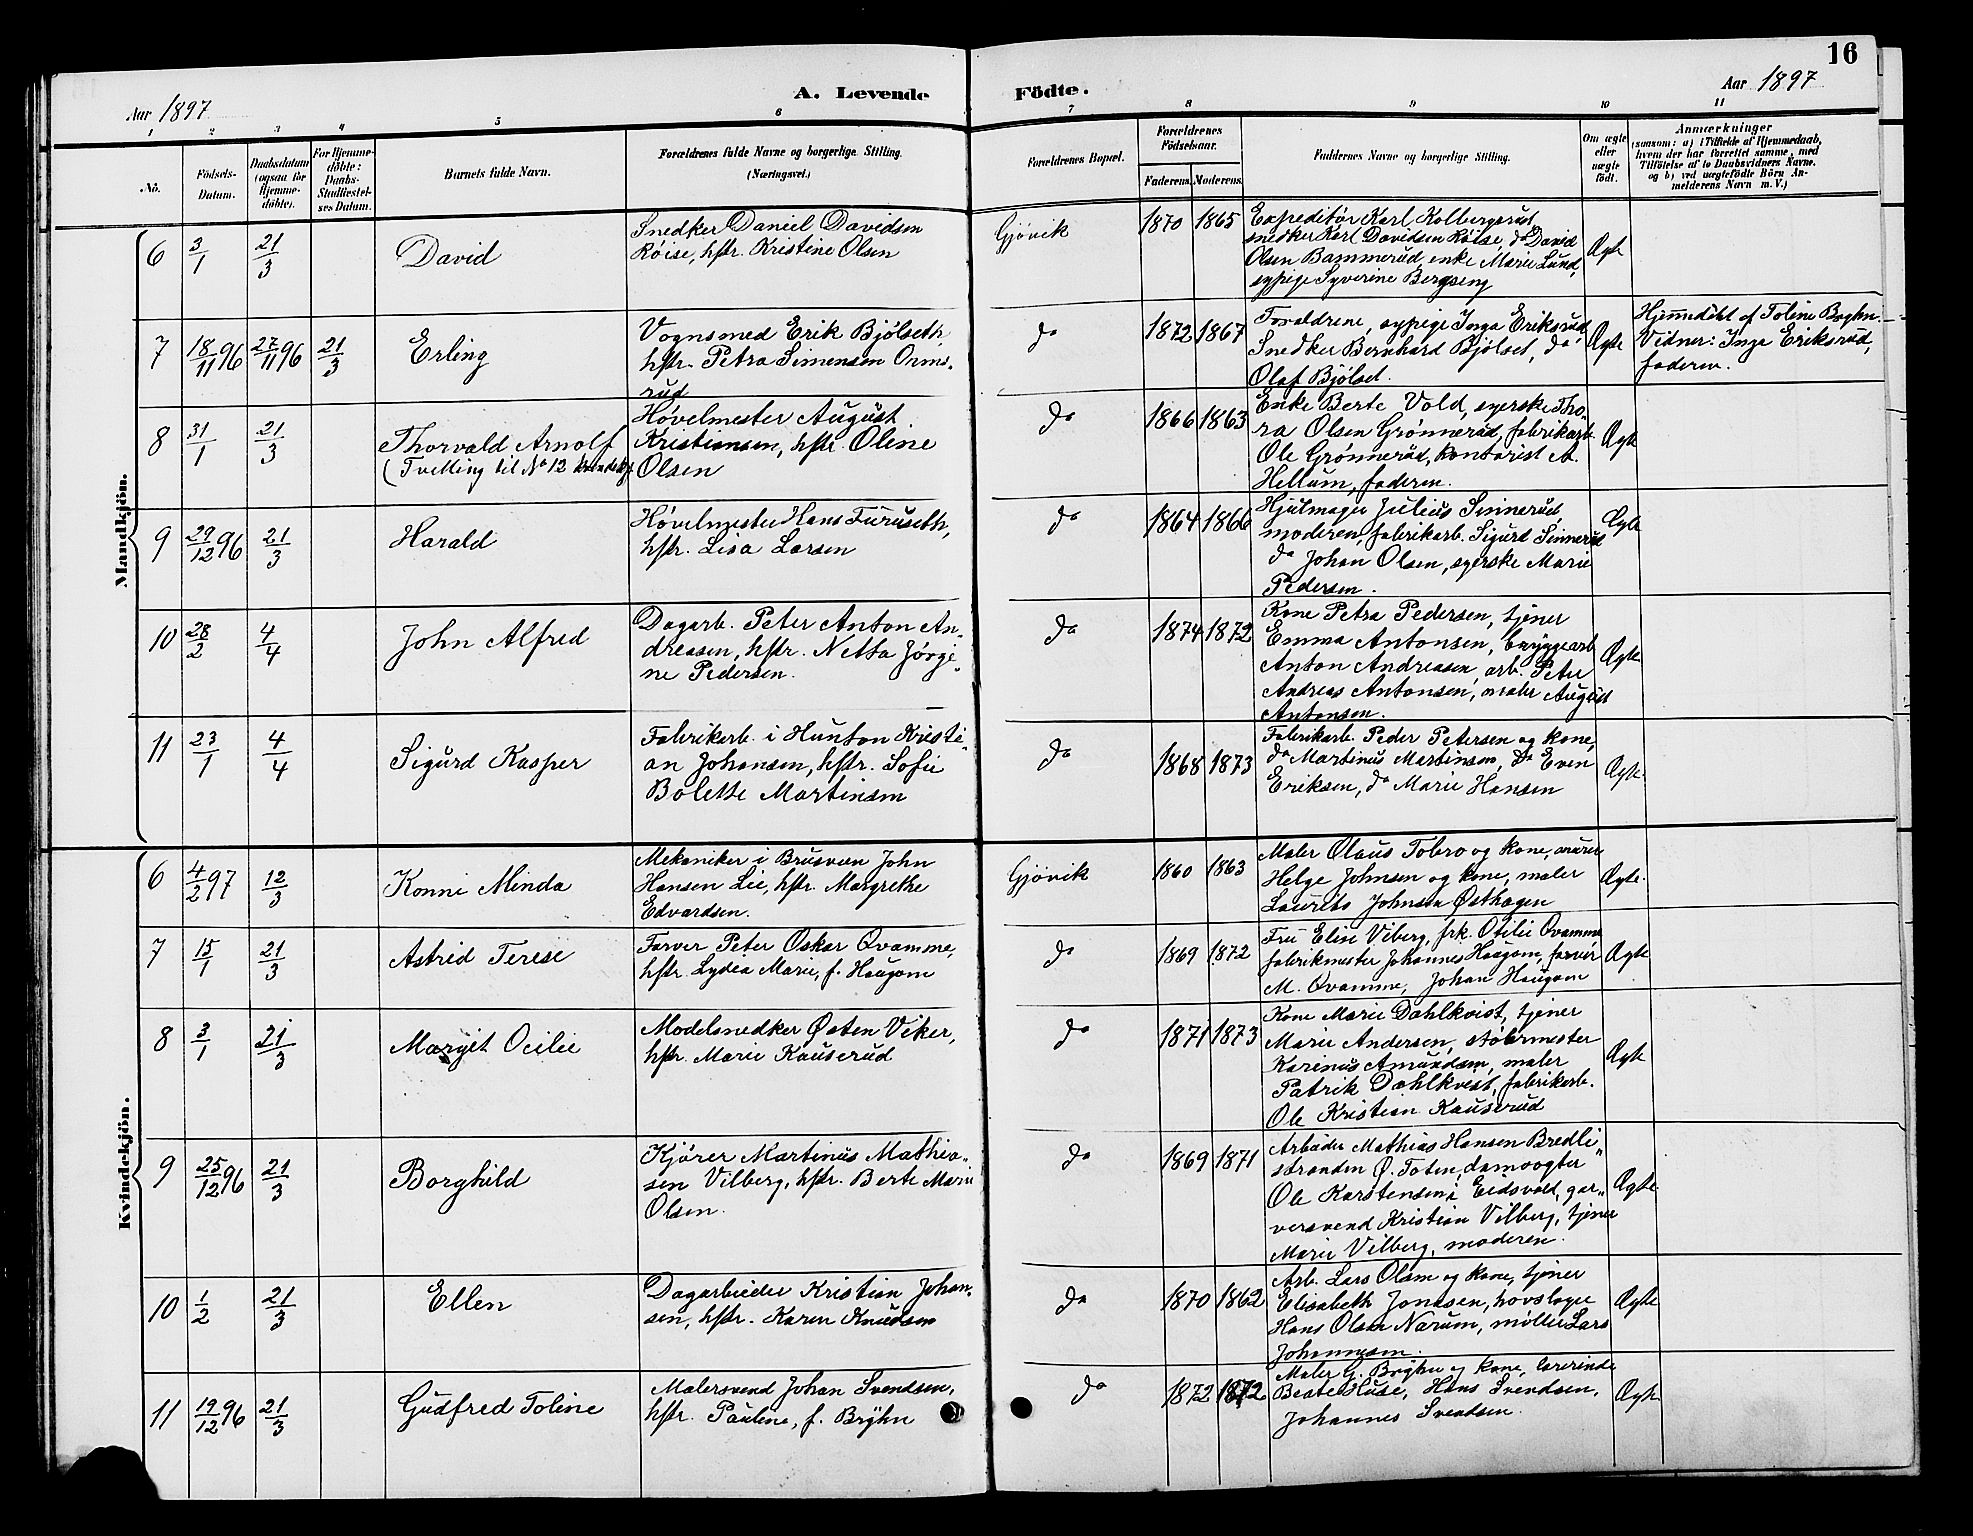 16
Aar 1897
A. Levende Fødte.
Aar 1897
1 2 3 4 5 6 7 8 9 10 11
No.
Fødsels-
Datum.
Daabsdatum
(ogsaa for
Hjemme-
døbte).
For Hjemme-
døbte:
Daabs-
Stadfæstel-
ses Datum.
Barnets fulde Navn.
Forældrenes fulde Navne og borgerlige Stilling.
(Næringsvei.)
Forældrenes Bopæl.
Forældrenes
Fødselsaar.
Faderens. Moderens.
Faddernes Navne og borgerlige Stilling.
Om ægte
eller
uægte
født.
Anmærkninger
(saasom: a) i Tilfælde af Hjemmedaab,
hvem der har forrettet samme, med
Tilføielse af to Daabsvidners Navne,
og b) ved uægtefødte Børn An-
melderens Navn m. V.)
Mandkjøn.
6 3/1 21/3 David
Snedker Daniel Davidsen
Røise, hstr. Kristine Olsen
Gjøvik 1870 1865
Expeditør Karl Kolbergsrud,
snedker Karl Davidsen Røise, do David
Olsen Bammerud, enke Marie Lund,
sypige Syverine Bergseng
Ægte
7 18/11 96 27/11 96 21/3 Erling
Vognsmed Erik Bjølseth,
hstr. Petra Simensen Orms-
rud
do 1872 1867
Forældrene, sypige Inga Eriksrud,
Snedker Bernhard Bjølset, do
Olaf Bjølset.
Ægte
Hjemdøbt af Toline Bryhn.
Vidner: Inga Eriksrud,
faderen.
8 31/1 21/3 Thorvald Arnolf
(Tvilling til No 12 kvindekj.
Høvelmester August
Kristiansen, hstr. Oline
Olsen
do 1866 1863
Enke Berte Vold, syerske Tho-
ra Olsen Grønnerud, fabrikarb.
Ole Grønnerud, kontorist A.
Hellum, faderen.
Ægte
9 29/12 96 21/3 Harald
Høvelmester Hans Furuseth,
hstr. Lisa Larsen
do 1864 1866
Hjulmager Julius Sinnerud,
moderen, fabrikarb. Sigurd Sinnerud
do Johan Olsen, syerske Marie
Pedersen.
Ægte
10 28/2 4/4 John Alfred
Dagarb. Peter Anton An-
dreasen, hstr. Netta Jørgi-
ne Pedersen.
do 1874 1872
Kone Petra Pedersen, tjener
Emma Antonsen, bryggearb
Anton Andreasen, arb. Peter
Andreas Antonsen, maler August
Antonsen.
Ægte
11 23/1 4/4 Sigurd Kasper
Fabrikarb. i Hunton Kristi-
an Johansen, hstr. Sofie
Bolette Martinsen
do 1868 1873
Fabrikarb. Peder Petersen og kone,
do Martinus Martinsen, do Even
Eriksen, do Marie Hansen
Ægte.
Kvindekjøn.
6 4/2 97 12/3 Konni Minda
Mekaniker i Brusveen John
Hansen Lie, hstr. Margrethe
Edvardsen.
Gjøvik 1860 1863
Maler Olaus Tobro og kone, murer
Helge Johnsen og kone, maler
Laurits Johnsen Østhagen
Ægte.
7 15/1 21/3 Astrid Terese
Farver Peter Oskar Qvamme,
hstr. Lydia Marie, f. Haugom
do 1869 1872
Fru Elise Viberg, frk. Otilie Qvamme
fabrikmester Johannes Haugom, farver
M. Qvamme, Johan Haugom
Ægte
8 3/1 21/3 Margit Ocilie
Modelsnedker Østen Viker,
hstr. Marie Kauserud
do 1871 1873
Kone Marie Dahlkvist, tjener
Marie Andersen, støbermester
Karinus Amundsen, maler
Patrik Dahlkvist, fabrikarb.
Ole Kristian Kauserud
Ægte
9 25/12 96 21/3 Borghild
Kjører Martinus Mathia-
sen Vilberg, hstr. Berte Marie
Olsen.
do 1869 1871
Arbeider Mathias Hansen Bredli-
stranden Ø. Toten, damvogter
Ole Karstensen i Eidsvold, gar-
versvend Kristian Vilberg, tjener
Marie Vilberg, moderen.
Ægte
10 1/2 21/3 Ellen
Dagarbeider Kristian Johan-
sen, hstr. Karen Knudsen
do 1870 1862
Arb. Lars Olsen og kone, tjener
Elisabeth Jonasen, hovslager
Hans Olsen Narum, møller Lars
Johannesen.
Ægte
11 19/12 96 21/3 Gudfred Toline
Malersvend Johan Svendsen,
hstr. Pauline, f. Bryhn
do 1872 1872
Maler G. Bryhn og kone, lærerinde
Beate Huse, Hans Svendsen,
Johannes Svendsen.
Ægte